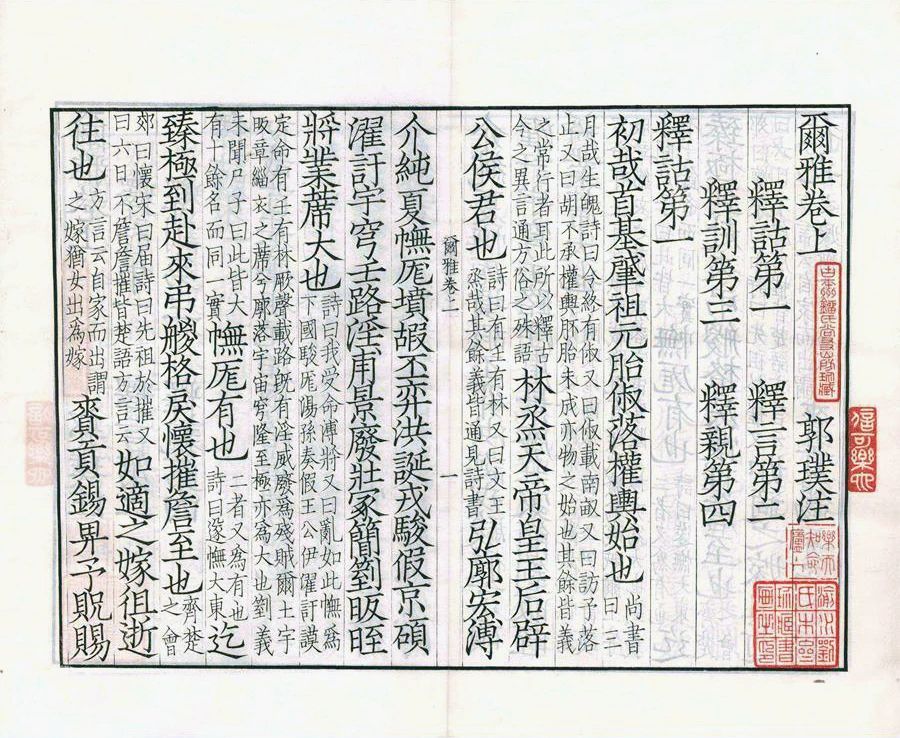 爾雅卷上 郭璞注
釋詁第一 釋言第二
釋訓第三 釋親第四
釋詁第一
初哉首基肈祖元胎俶落權輿始也 尚書
曰三
月哉生魄詩曰令終有俶又曰俶載南畝又曰訪予落
止又曰胡不承權輿胚胎未成亦物之始也其餘皆義
之常行者耳此所以釋古
今之異言通方俗之殊語
林烝天帝皇王后辟
公侯君也
詩曰有壬有林又曰文王
烝哉其餘義皆通見詩書
弘廓宏溥
爾雅卷二 一
介純夏幠厖墳嘏丕弈洪誕戎駿假京碩
濯訏宇穹壬路淫甫景廢壯冢簡箌昄晊
將業蓆大也
詩曰我受命溥將又曰亂如此幠為
下國駿厖湯孫奏假王公伊濯訏謨
定命有壬有林厥聲載路旣有淫威廢為殘賊爾土宇
昄章緇衣之蓆兮廓落宇宙穹隆至極亦為大也箌義
未聞尸子曰此皆大
有十餘名而同一實
幠厖有也
二者又為有也
詩曰遂幠大東
迄
臻極到赴來弔艐格戾懷摧詹至也
齊楚
之會
郊曰懷宋曰屆詩曰先祖於摧又
曰六日不詹詹摧皆楚語方言云
如適之嫁徂逝
往也
方言云自家而出謂
之嫁猶女出為嫁
賚貢錫畀予貺賜
信可樂也